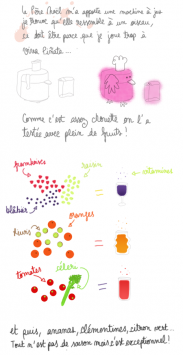 le Père Noël m'a apporté une machine à jus
je trouve qu'elle ressemble à un oiseau,
ça doit être parce que je joue trop à
Viva Piñata...
Comme c'est assez chouette on l'a
testée avec plein de fruits!
framboises
raisin
vitamines
blébler
oranges
kiwis
tomates
céleri
et puis, ananas, clémentines, citron vert...
Tout n'est pas de saison mais c'est exceptionnel!